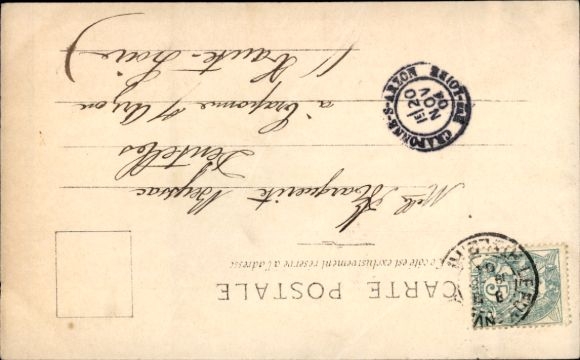 CARTE POSTALE
Ce côté est exclusivement réservé à l'adresse
Melle Marguerite Veyssac
Dentelles
à Craponne s/ Arzon
(Haute-Loire)
CRAPONNE-S-ARZON HTE-LOIRE
20
NOV
04
5